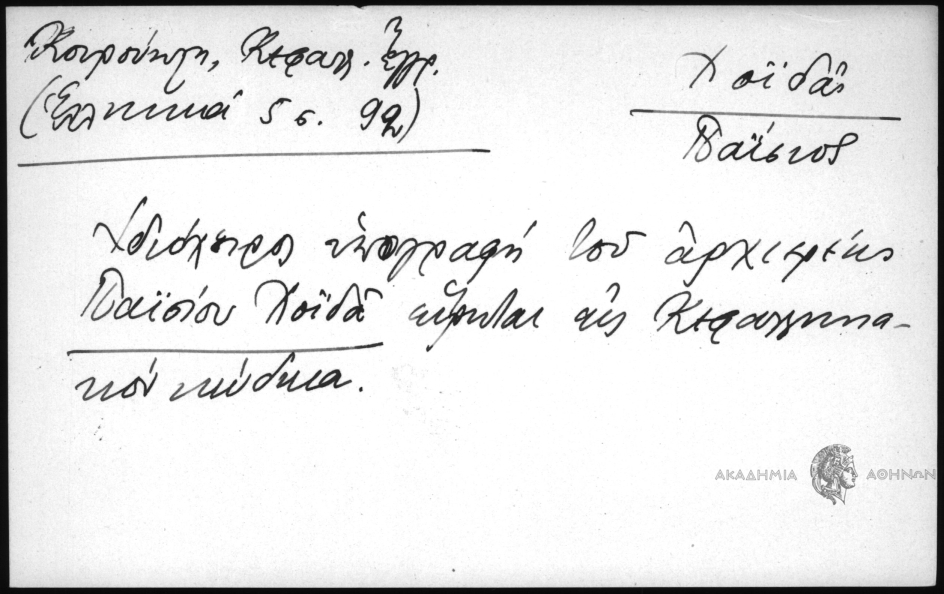 Κουρούκλη, Κεφαλλ. Ἔγγρ.
(Ἑλληνικά 5 σ. 92)
Χοϊδᾶς
Παΐσιος
Ἰδιόχειρος ὑπογραφή τοῦ ἀρχιερέως
Παϊσίου Χοϊδᾶ εὕρηται εἰς Κεφαλληνια-
κόν κώδικα.
ΑΚΑΔΗΜΙΑ ΑΘΗΝΩΝ